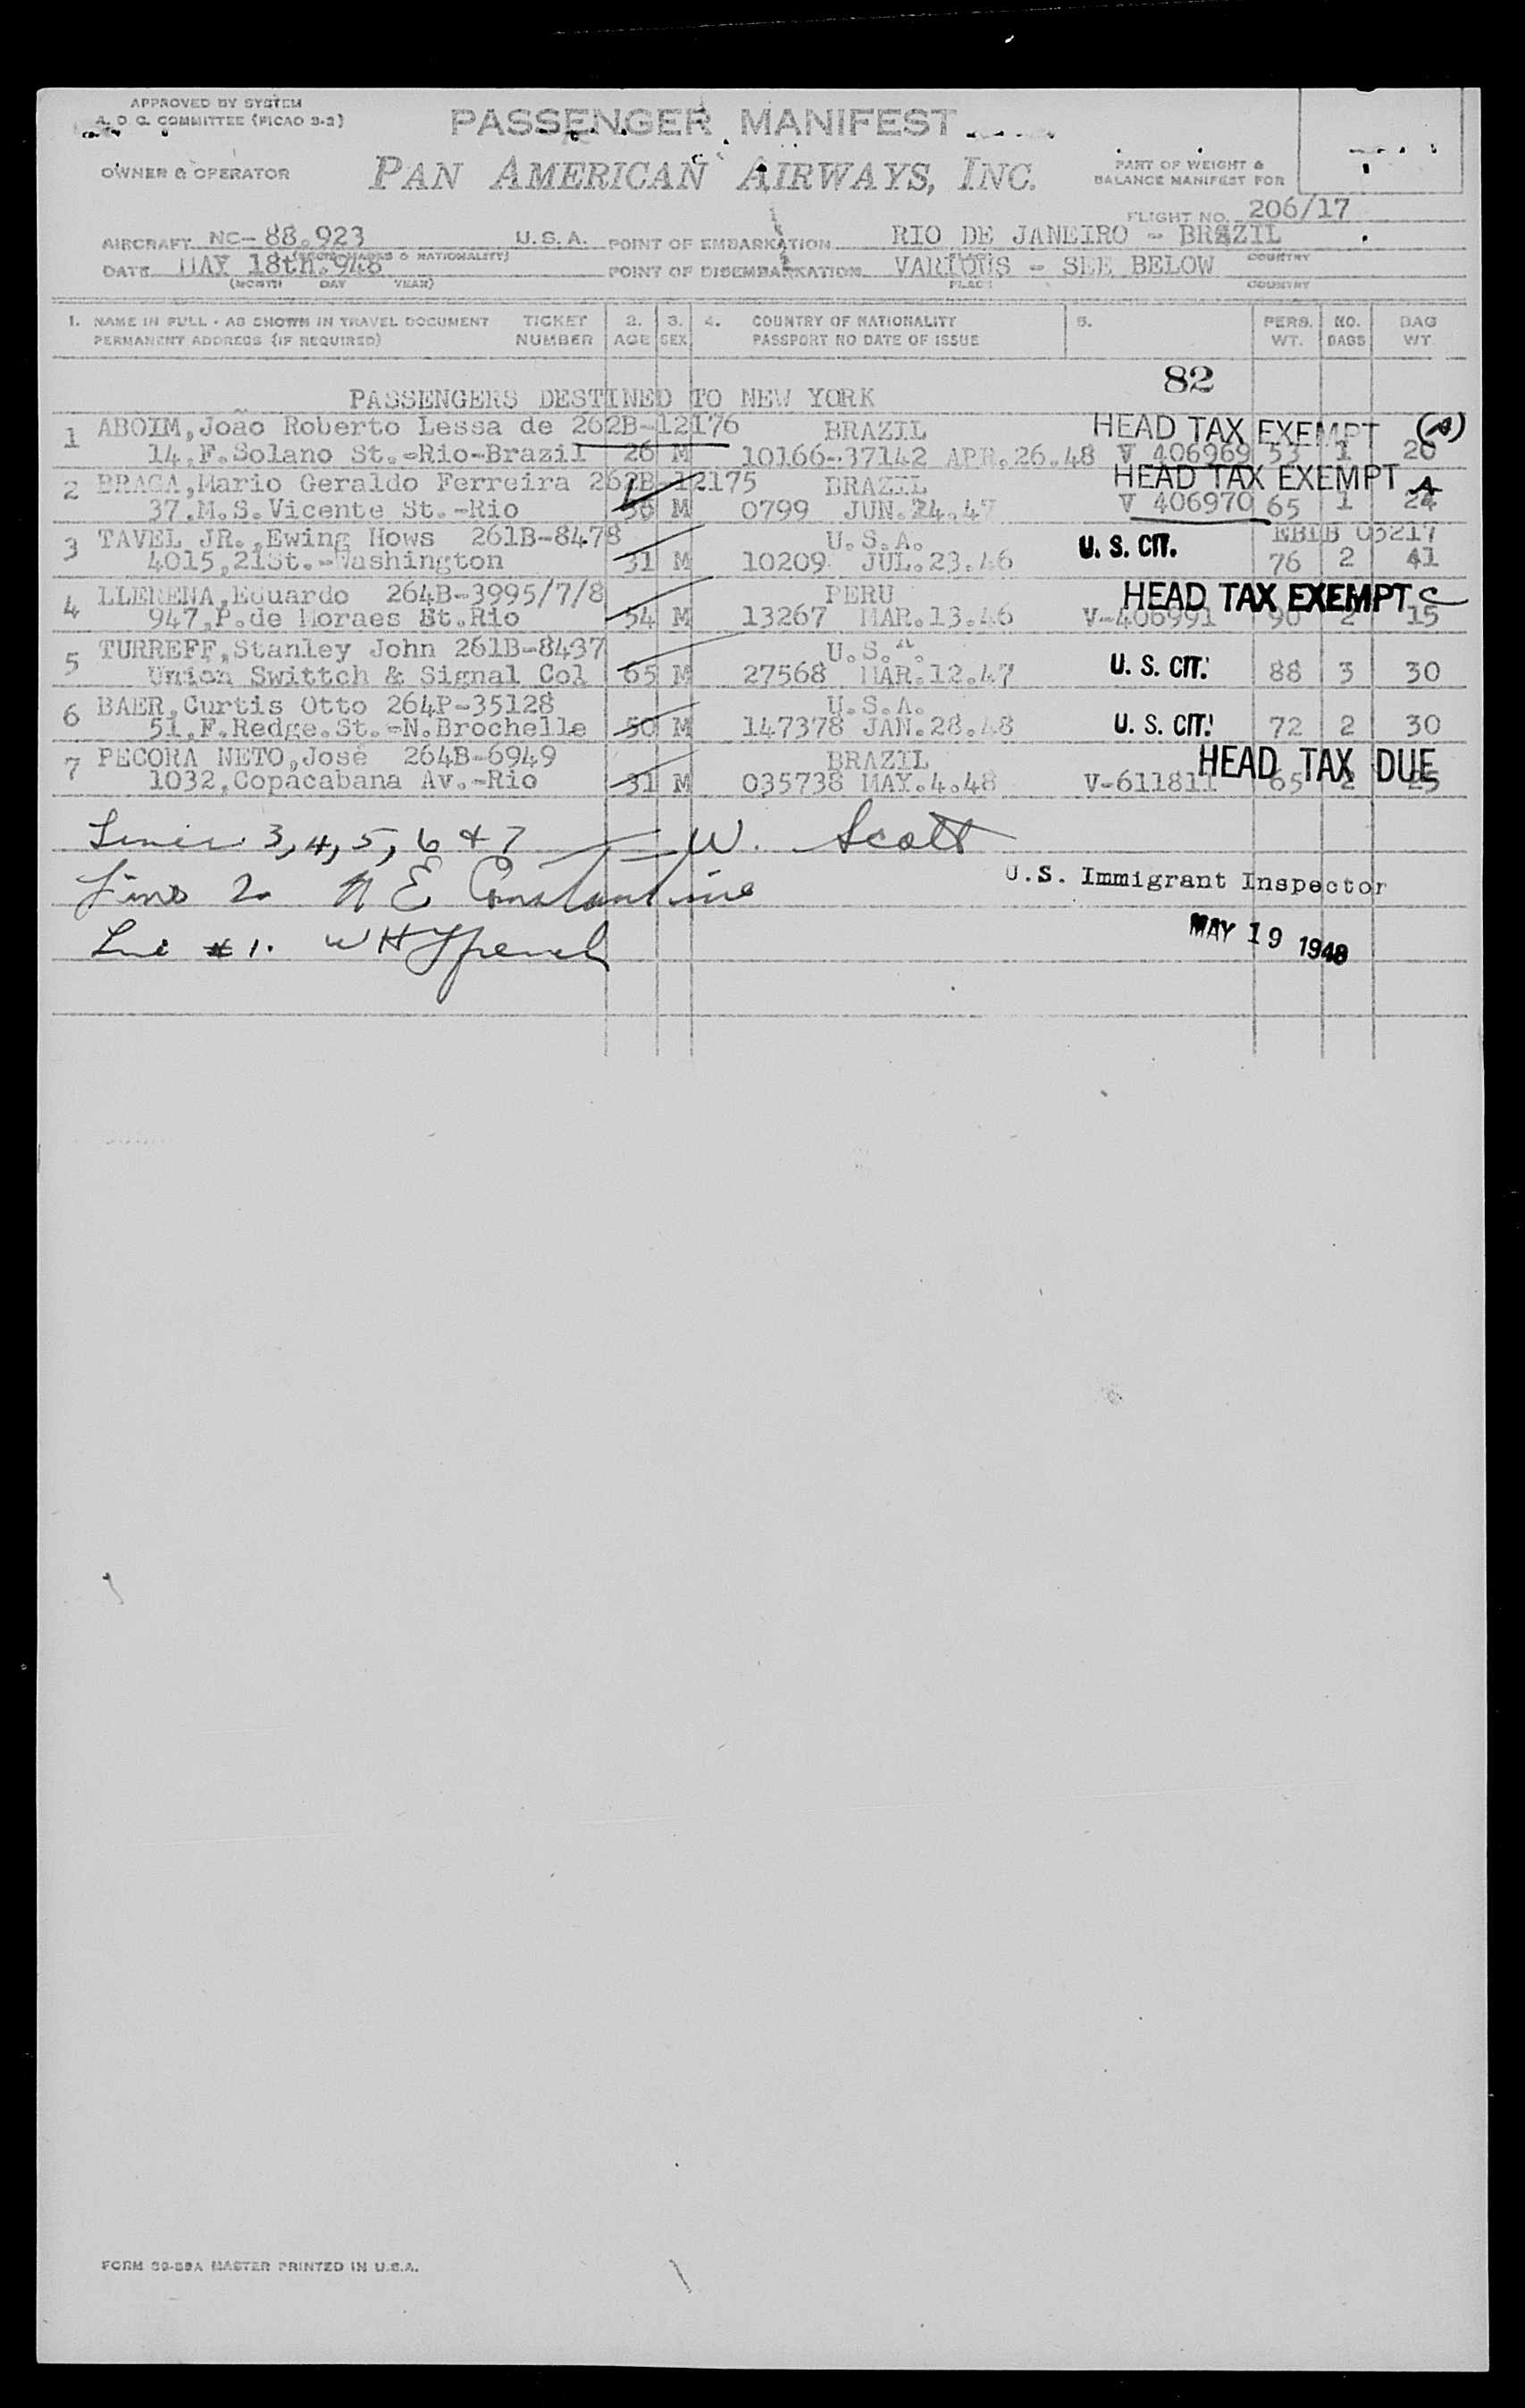 APPROVED BY SYSTEM
A. O. G. COMMITTEE (PICAO 2-2)
PASSENGER MANIFEST
OWNER & OPERATOR
PAN AMERICAN AIRWAYS, INC.
PART OF WEIGHT &
BALANCE MANIFEST FOR
FLIGHT NO. 206/17
AIRCRAFT NC- 88.923 U.S.A. POINT OF EMBARKATION RIO DE JANEIRO - BRAZIL
(REGIS. MARKS & NATIONALITY) COUNTRY
DATE MAY 18th.948 POINT OF DISEMBARKATION VARIOUS - SEE BELOW
(MONTH DAY YEAR) PLACE COUNTRY
1. NAME IN FULL - AS SHOWN IN TRAVEL DOCUMENT TICKET 2. 3. 4. COUNTRY OF NATIONALITY 5. PERS. NO. BAG
PERMANENT ADDRESS (IF REQUIRED) NUMBER AGE SEX PASSPORT NO DATE OF ISSUE WT. BAGS WT
82
PASSENGERS DESTINED TO NEW YORK
1 ABOIM,João Roberto Lessa de 262B-12176 BRAZIL HEAD TAX EXEMPT (A)
14,F.Solano St.-Rio-Brazil 26 M 10166-37142 APR.26.48 V 406969 53 1 20
2 BRAGA,Mario Geraldo Ferreira 262B-12175 BRAZIL HEAD TAX EXEMPT A
37.M.S.Vicente St.-Rio 36 M 0799 JUN.24.47 V 406970 65 1 24
3 TAVEL JR.,Ewing Hows 261B-8478 U.S.A. U. S. CIT. EBIB 05217
4015,21St.-Washington 31 M 10209 JUL.23.46 76 2 41
4 LLERENA,Eduardo 264B-3995/7/8 PERU HEAD TAX EXEMPT C
947,P.de Moraes St.Rio 54 M 13267 MAR.13.46 V-406991 90 2 15
5 TURREFF,Stanley John 261B-8437 U.S.A. U. S. CIT.
Union Swittch & Signal Col 65 M 27568 MAR.12.47 88 3 30
6 BAER,Curtis Otto 264P-35128 U.S.A. U. S. CIT.
51,F.Redge.St.-N.Brochelle 50 M 147378 JAN.28.48 72 2 30
7 PECORA NETO,José 264B-6949 BRAZIL HEAD TAX DUE
1032,Copacabana Av.-Rio 31 M 035738 MAY.4.48 V-611811 65 2 25
Lines 3, 4, 5, 6 & 7 W. Scott
U.S. Immigrant Inspector
Line 2 N E Constantine
MAY 19 1948
Line #1. W H
FORM 39-89A MASTER PRINTED IN U.S.A.